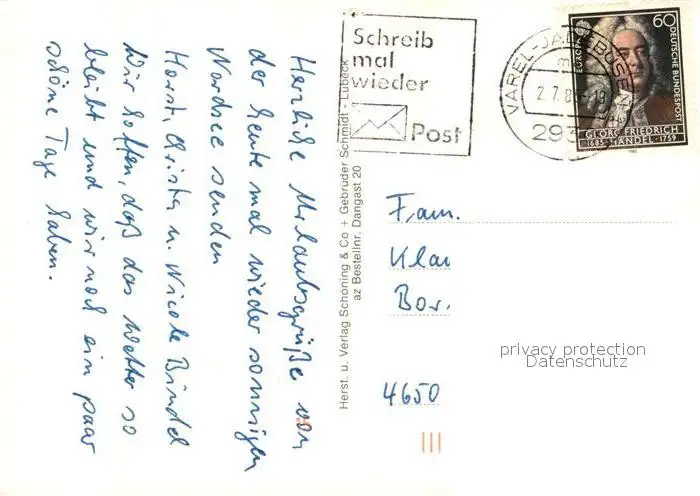 Herzliche Urlaubsgrüße von
der heute mal wieder sonnigen
Nordsee senden
Horst, Christa u. Nicole Bündel
Wir hoffen, daß das Wetter so
bleibt und wir noch ein paar
schöne Tage haben.
Herst. u. Verlag Schöning & Co + Gebrüder Schmidt - Lübeck
az Bestellnr. Dangast 20
Schreib
mal
wieder
Post
VAREL-JADEBUSEN
2.7.8
293
60
EUROPA
DEUTSCHE BUNDESPOST
GEORG FRIEDRICH
1685 HÄNDEL 1759
Fam.
Klau
Bor.
4650
privacy protection
Datenschutz